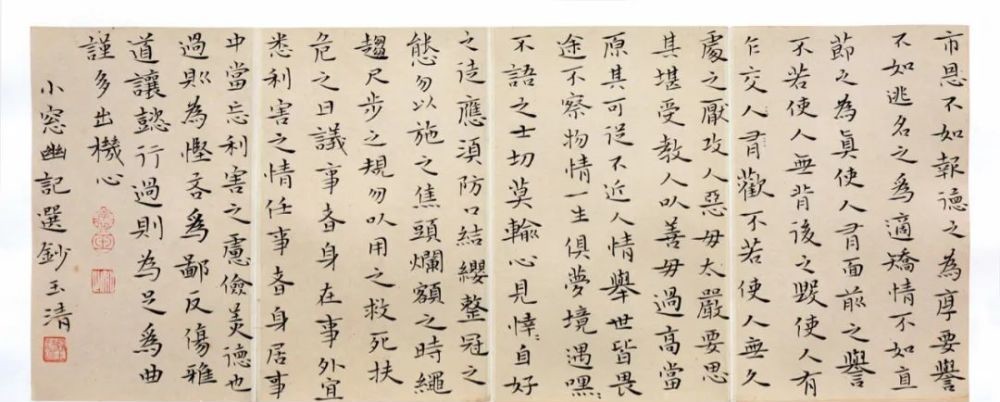 市恩不如報德之為厚要譽
不如逃名之為適矯情不如直
節之為真使人有面前之譽
不若使人無背後之毀使人有
乍交人有歡不若使人無久
處之厭攻人惡毋太嚴要思
其堪受教人以善毋過高當
原其可從不近人情舉世皆畏
途不察物情一生俱夢境遇嘿〻
不語之士切莫輸心見悻〻自好
之徒應須防口結纓整冠之
態勿以施之焦頭爛額之時繩
趨尺步之規勿以用之救死扶
危之日議事者身在事外宜
悉利害之情任事者身居事
中當忘利害之慮儉美德也
過則為慳吝為鄙反傷雅
道讓懿行過則為足為曲
謹多出機心
小窓幽記選鈔玉清